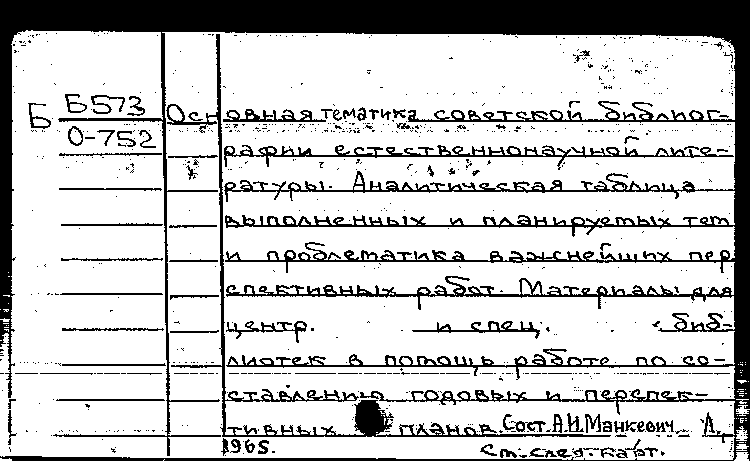 Б Б573
О-752
Основная тематика советской библиог-
рафии естественнонаучной лите-
ратуры. Аналитическая таблица
выполненных и планируемых тем
и проблематика важнейших пер
спективных работ. Материалы для
центр. и спец. биб-
лиотек в помощь работе по со-
ставлению годовых и перспек-
тивных планов. Сост. А.И. Манкевич. Л.,
1965. См. след. карт.